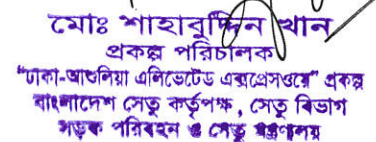 মোঃ শাহাবুদ্দিন খান
প্রকল্প পরিচালক
“ঢাকা-আশুলিয়া এলিভেটেড এক্সপ্রেসওয়ে” প্রকল্প
বাংলাদেশ সেতু কর্তৃপক্ষ, সেতু বিভাগ
সড়ক পরিবহন ও সেতু মন্ত্রণালয়